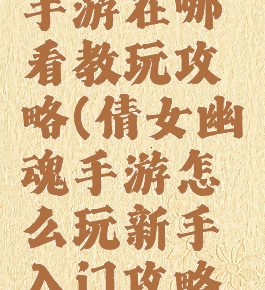 手游在哪
看教玩攻
略(倩女幽
魂手游怎
么玩新手
入门攻略